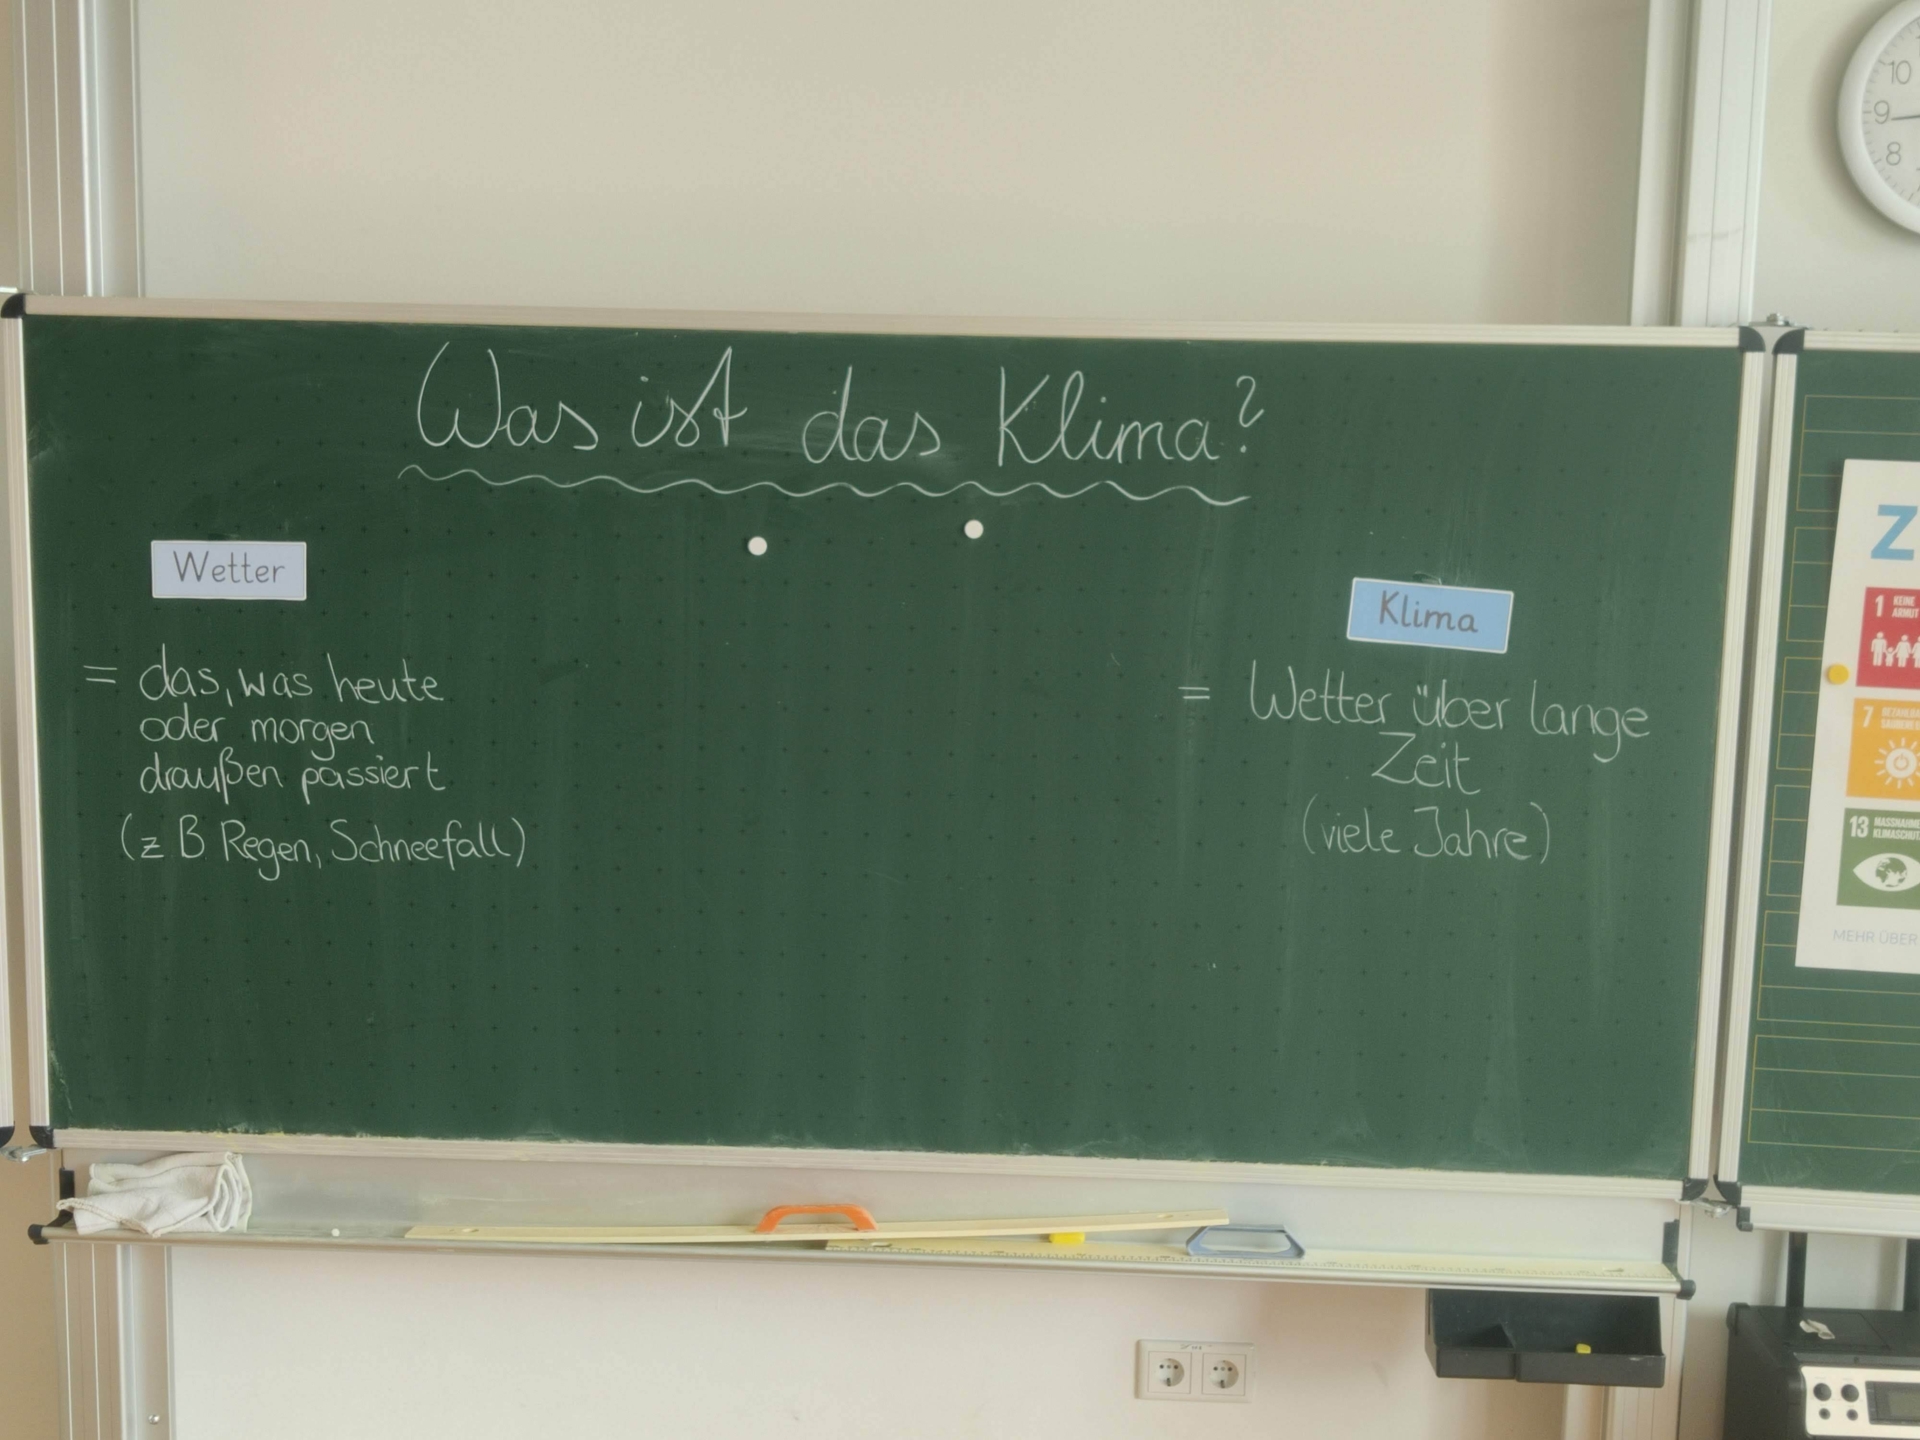 Was ist das Klima?
Wetter
= das, was heute
oder morgen
draußen passiert
(z B Regen, Schneefall)
Klima
= Wetter über lange
Zeit
(viele Jahre)
10
9
8
Z
1 KEINE
ARMUT
7
13 MASSNAHME
KLIMASCHUT
MEHR ÜBER